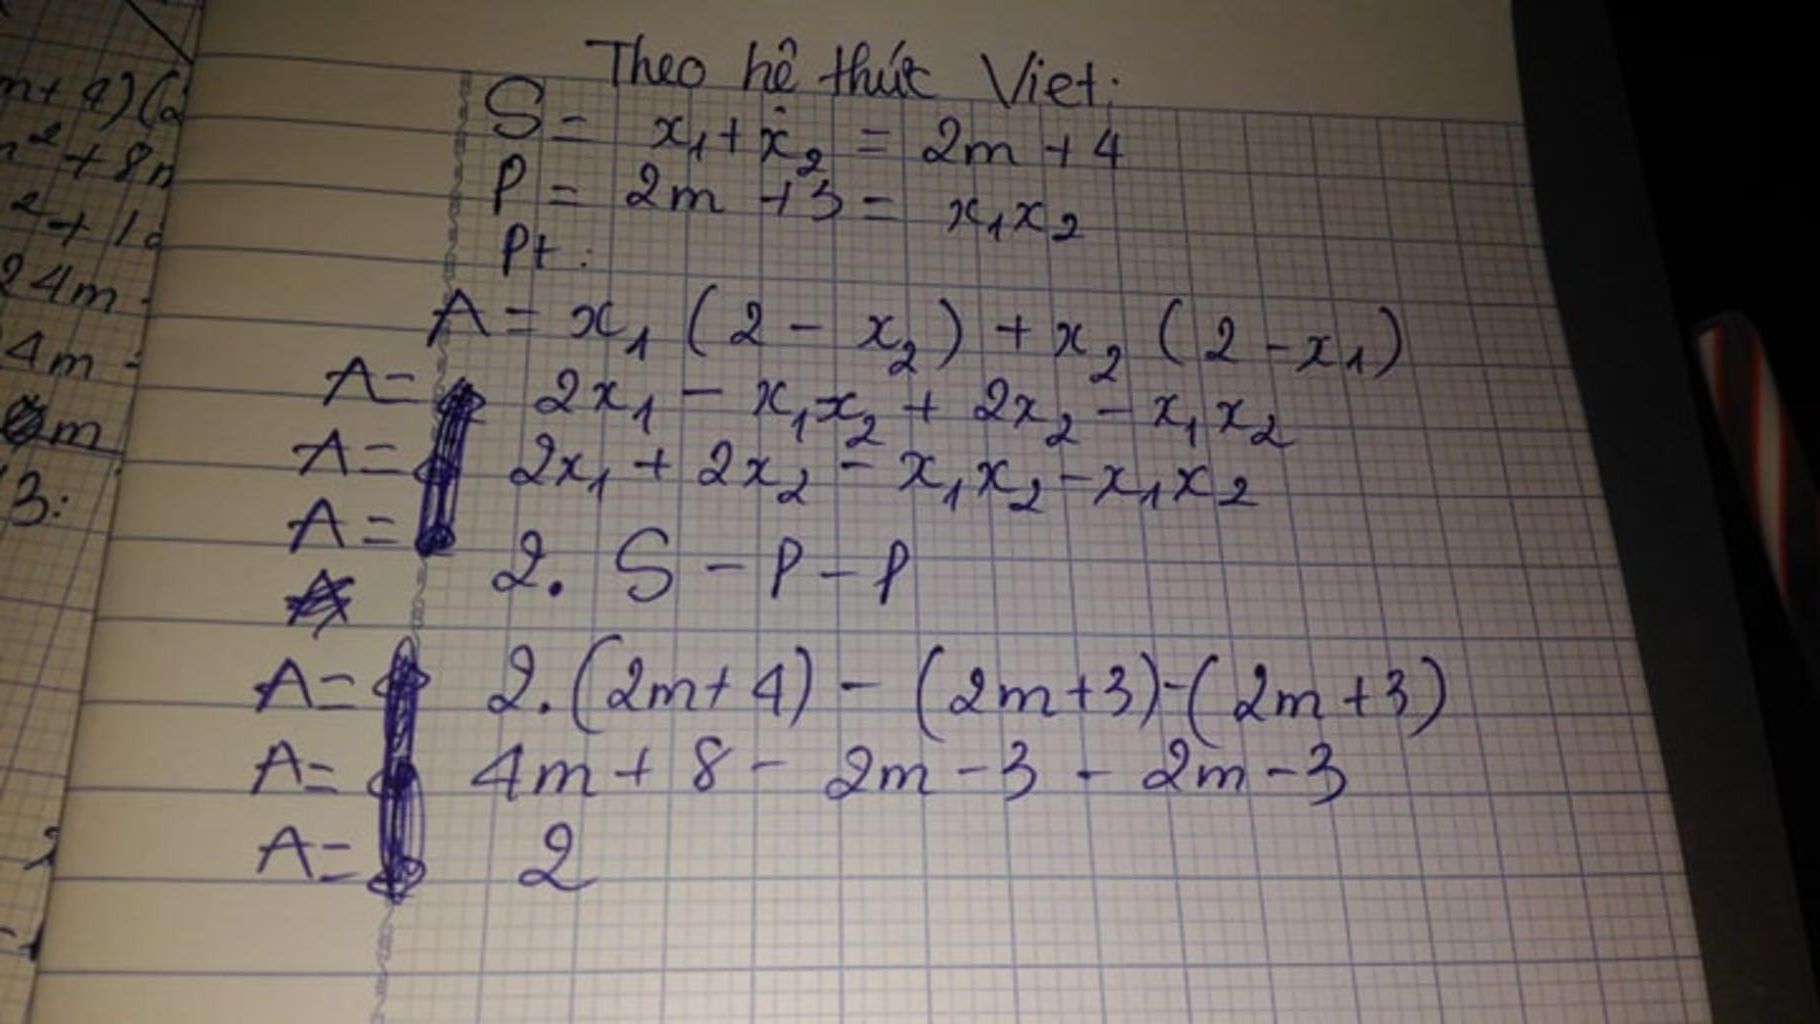 m+4)(2
²+8m
²+1
24m
4m
m
3:
Theo hệ thức Viet:
S = x₁ + x₂ = 2m + 4
P = 2m + 3 = x₁x₂
Pt:
A = x₁ (2 - x₂) + x₂ (2 - x₁)
A = 2x₁ - x₁x₂ + 2x₂ - x₁x₂
A = 2x₁ + 2x₂ - x₁x₂ - x₁x₂
A = 2. S - P - P
A = 2. (2m + 4) - (2m + 3) - (2m + 3)
A = 4m + 8 - 2m - 3 - 2m - 3
A = 2